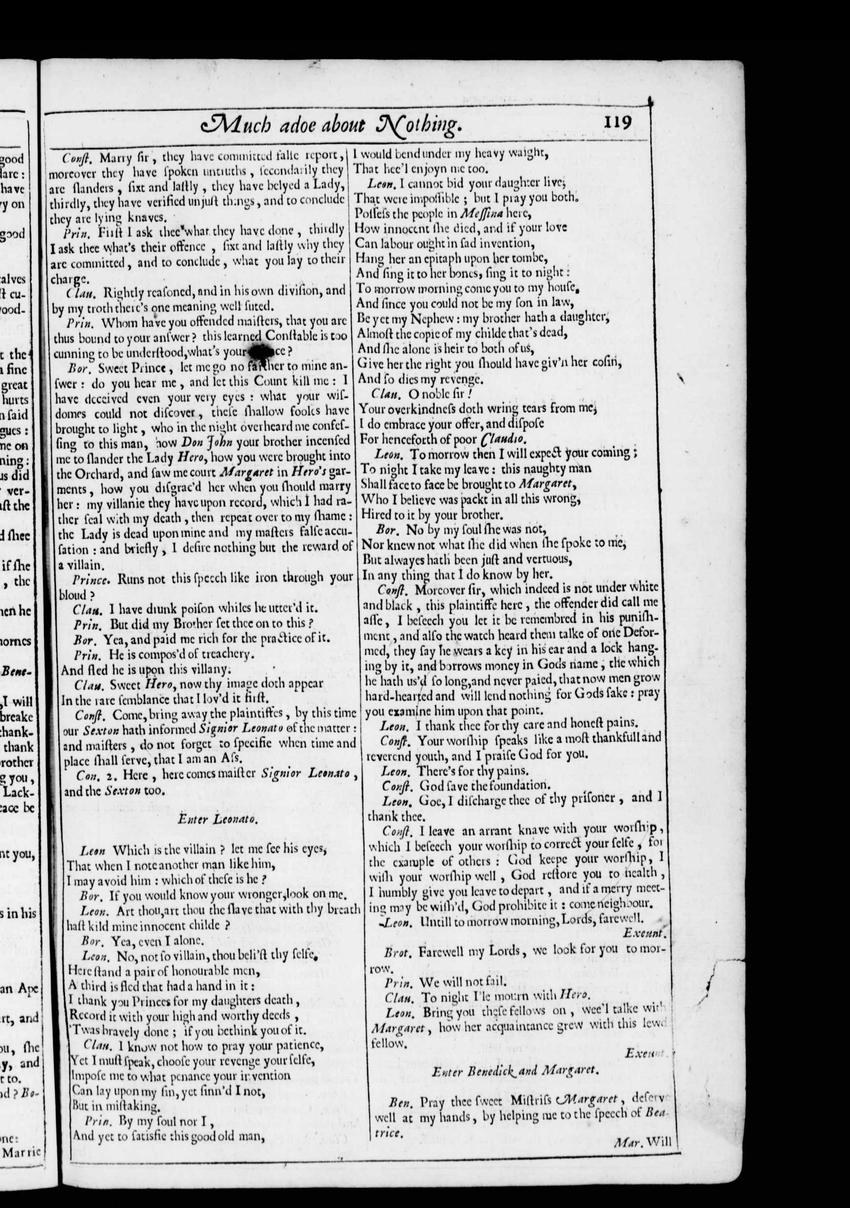 good
lare:
have
ry on
good
alves
ſt cu-
ood-
t the
a fine
great
hurts
n ſaid
gues:
me on
ning:
us did
ver-
aſt the
d ſhee
if ſhe
, the
hen he
hornes
Bene-
,I will
breake
thank-
thank
rother
g you,
Lack-
eace be
nt you,
s in his
an Ape
rt, and
ou, ſhe
y, and
t to.
ad? Bo-
one:
Marrie
Much adoe about Nothing.
119
Conſt. Marry ſir, they have committed falſe report,
moreover they have ſpoken untruths, ſecondarily they
are ſlanders, ſixt and laſtly, they have belyed a Lady,
thirdly, they have verified unjuſt things, and to conclude
they are lying knaves.
Prin. Firſt I ask thee what they have done, thirdly
I ask thee what's their offence, ſixt and laſtly why they
are committed, and to conclude, what you lay to their
charge.
Clau. Rightly reaſoned, and in his own diviſion, and
by my troth there's one meaning well ſuted.
Prin. Whom have you offended maiſters, that you are
thus bound to your anſwer? this learned Conſtable is too
cunning to be underſtood, what's your ce?
Bor. Sweet Prince, let me go no farther to mine an-
ſwer: do you hear me, and let this Count kill me: I
have deceived even your very eyes: what your wiſ-
domes could not diſcover, theſe ſhallow fooles have
brought to light, who in the night overheard me confeſ-
ſing to this man, how Don John your brother incenſed
me to ſlander the Lady Hero, how you were brought into
the Orchard, and ſaw me court Margaret in Hero's gar-
ments, how you diſgrac'd her when you ſhould marry
her: my villanie they have upon record, which I had ra-
ther ſeal with my death, then repeat over to my ſhame:
the Lady is dead upon mine and my maſters falſe accu-
ſation: and briefly, I deſire nothing but the reward of
a villain.
Prince. Runs not this ſpeech like iron through your
bloud?
Clau. I have drunk poiſon whiles he utter'd it.
Prin. But did my Brother ſet thee on to this?
Bor. Yea, and paid me rich for the practice of it.
Prin. He is compos'd of treachery.
And fled he is upon this villany.
Clau. Sweet Hero, now thy image doth appear
In the rare ſemblance that I lov'd it firſt.
Conſt. Come, bring away the plaintiffes, by this time
our Sexton hath informed Signior Leonato of the matter:
and maiſters, do not forget to ſpecifie when time and
place ſhall ſerve, that I am an Aſs.
Con. 2. Here, here comes maiſter Signior Leonato,
and the Sexton too.
Enter Leonato.
Leon Which is the villain? let me ſee his eyes,
That when I note another man like him,
I may avoid him: which of theſe is he?
Bor. If you would know your wronger, look on me.
Leon. Art thou, art thou the ſlave that with thy breath
haſt kild mine innocent childe?
Bor. Yea, even I alone.
Leon. No, not ſo villain, thou beli'ſt thy ſelfe,
Here ſtand a pair of honourable men,
A third is fled that had a hand in it:
I thank you Princes for my daughters death,
Record it with your high and worthy deeds,
'Twas bravely done; if you bethink you of it.
Clau. I know not how to pray your patience,
Yet I muſt ſpeak, chooſe your revenge your ſelfe,
Impoſe me to what penance your invention
Can lay upon my ſin, yet ſinn'd I not,
But in miſtaking.
Prin. By my ſoul nor I,
And yet to ſatisfie this good old man,
I would bend under my heavy waight,
That hee'l enjoyn me too.
Leon. I cannot bid your daughter live,
That were impoſſible; but I pray you both,
Poſſeſs the people in Meſſina here,
How innocent ſhe died, and if your love
Can labour ought in ſad invention,
Hang her an epitaph upon her tombe,
And ſing it to her bones, ſing it to night:
To morrow morning come you to my houſe,
And ſince you could not be my ſon in law,
Be yet my Nephew: my brother hath a daughter,
Almoſt the copie of my childe that's dead,
And ſhe alone is heir to both of us,
Give her the right you ſhould have giv'n her coſin,
And ſo dies my revenge.
Clau. O noble ſir!
Your overkindneſs doth wring tears from me,
I do embrace your offer, and diſpoſe
For henceforth of poor Claudio.
Leon. To morrow then I will expect your coming;
To night I take my leave: this naughty man
Shall face to face be brought to Margaret,
Who I believe was packt in all this wrong,
Hired to it by your brother.
Bor. No by my ſoul ſhe was not,
Nor knew not what ſhe did when ſhe ſpoke to me,
But alwayes hath been juſt and vertuous,
In any thing that I do know by her.
Conſt. Moreover ſir, which indeed is not under white
and black, this plaintiffe here, the offender did call me
aſſe, I beſeech you let it be remembred in his puniſh-
ment, and alſo the watch heard them talke of one Defor-
med, they ſay he wears a key in his ear and a lock hang-
ing by it, and borrows money in Gods name, the which
he hath us'd ſo long, and never paied, that now men grow
hard-hearted and will lend nothing for Gods ſake: pray
you examine him upon that point.
Leon. I thank thee for thy care and honeſt pains.
Conſt. Your worſhip ſpeaks like a moſt thankfull and
reverend youth, and I praiſe God for you.
Leon. There's for thy pains.
Conſt. God ſave the foundation.
Leon. Goe, I diſcharge thee of thy priſoner, and I
thank thee.
Conſt. I leave an arrant knave with your worſhip,
which I beſeech your worſhip to correct your ſelfe, for
the example of others: God keepe your worſhip, I
wiſh your worſhip well, God reſtore you to health,
I humbly give you leave to depart, and if a merry meet-
ing may be wiſh'd, God prohibite it: come neighbour.
Leon. Untill to morrow morning, Lords, farewell.
Exeunt.
Brot. Farewell my Lords, we look for you to mor-
row.
Prin. We will not fail.
Clau. To night I'le mourn with Hero.
Leon. Bring you theſe fellows on, wee'l talke with
Margaret, how her acquaintance grew with this lewd
fellow.
Exeunt.
Enter Benedick and Margaret.
Ben. Pray thee ſweet Miſtriſs Margaret, deſerve
well at my hands, by helping me to the ſpeech of Bea-
trice.
Mar. Will